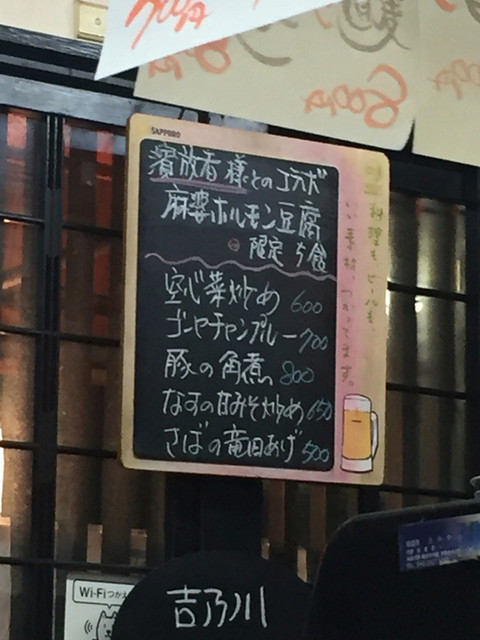 700円
600円
SAPPORO
濱放香様とのコラボ
麻婆ホルモン豆腐
限定5食
空心菜炒め 600
ゴーヤチャンプルー 700
豚の角煮 800
なすの甘みそ炒め 650
さばの竜田あげ 500
料理も、ビールも、
いい素材、つかってます。
Wi-Fiつかえ
吉乃川